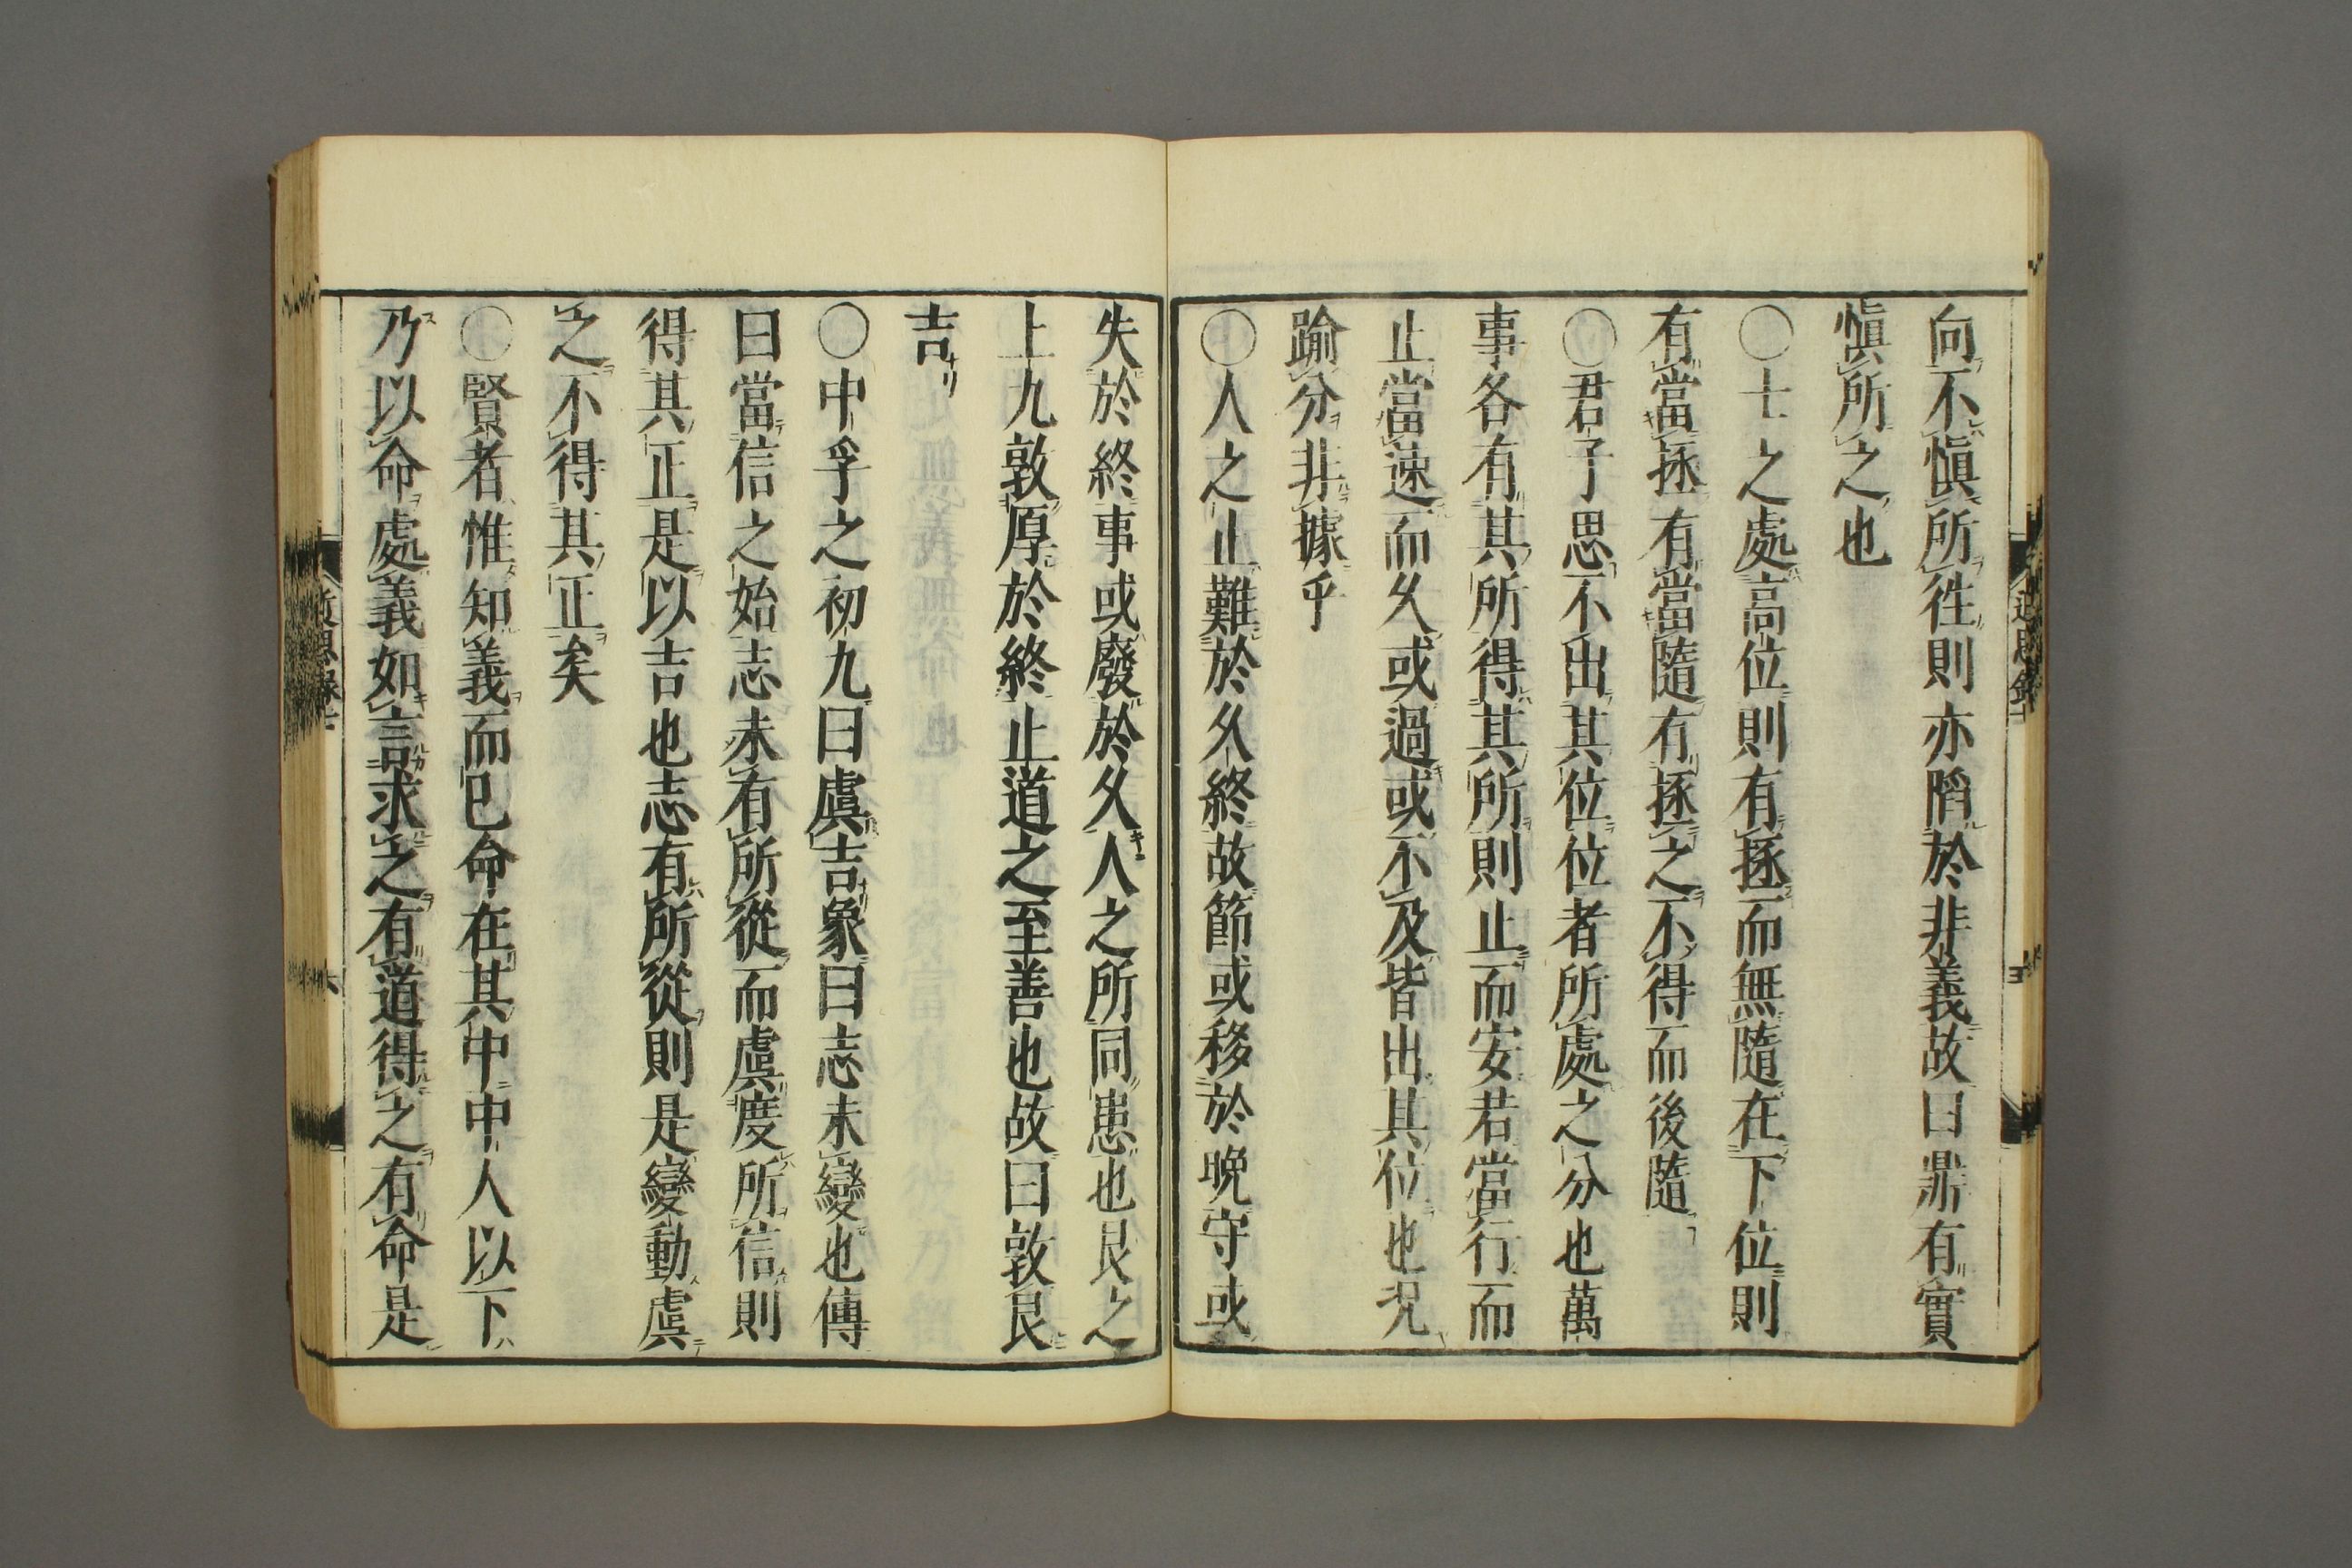 向不愼所徃則亦陷於非義故曰鼎有實
愼所之也
○士之處高位則有拯而無隨在下位則
有當拯有當隨有拯之不得而後隨
○君子思不出其位位者所處之分也萬
事各有其所得其所則止而安若當行而
止當速而久或過或不及皆出其位也况
踰分非據乎
○人之止難於久終故節或移於晩守或
失於終事或廢於久人之所同患也艮之
上九敦厚於終止道之至善也故曰敦艮
吉
○中孚之初九曰虞吉象曰志未變也傳
曰當信之始志未有所從而虞度所信則
得其正是以吉也志有所從則是變動虞
之不得其正矣
○賢者惟知義而已命在其中中人以下
乃以命處義如言求之有道得之有命是